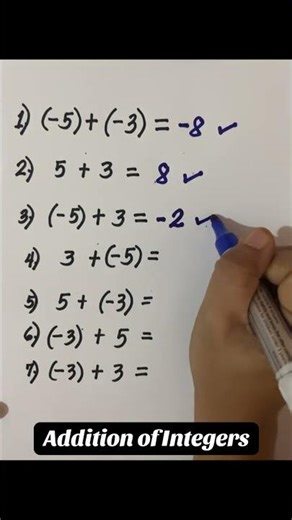 1) (-5) + (-3) = -8 ✓
2) 5 + 3 = 8 ✓
3) (-5) + 3 = -2 ✓
4) 3 + (-5) =
5) 5 + (-3) =
6) (-3) + 5 =
7) (-3) + 3 =
Addition of Integers